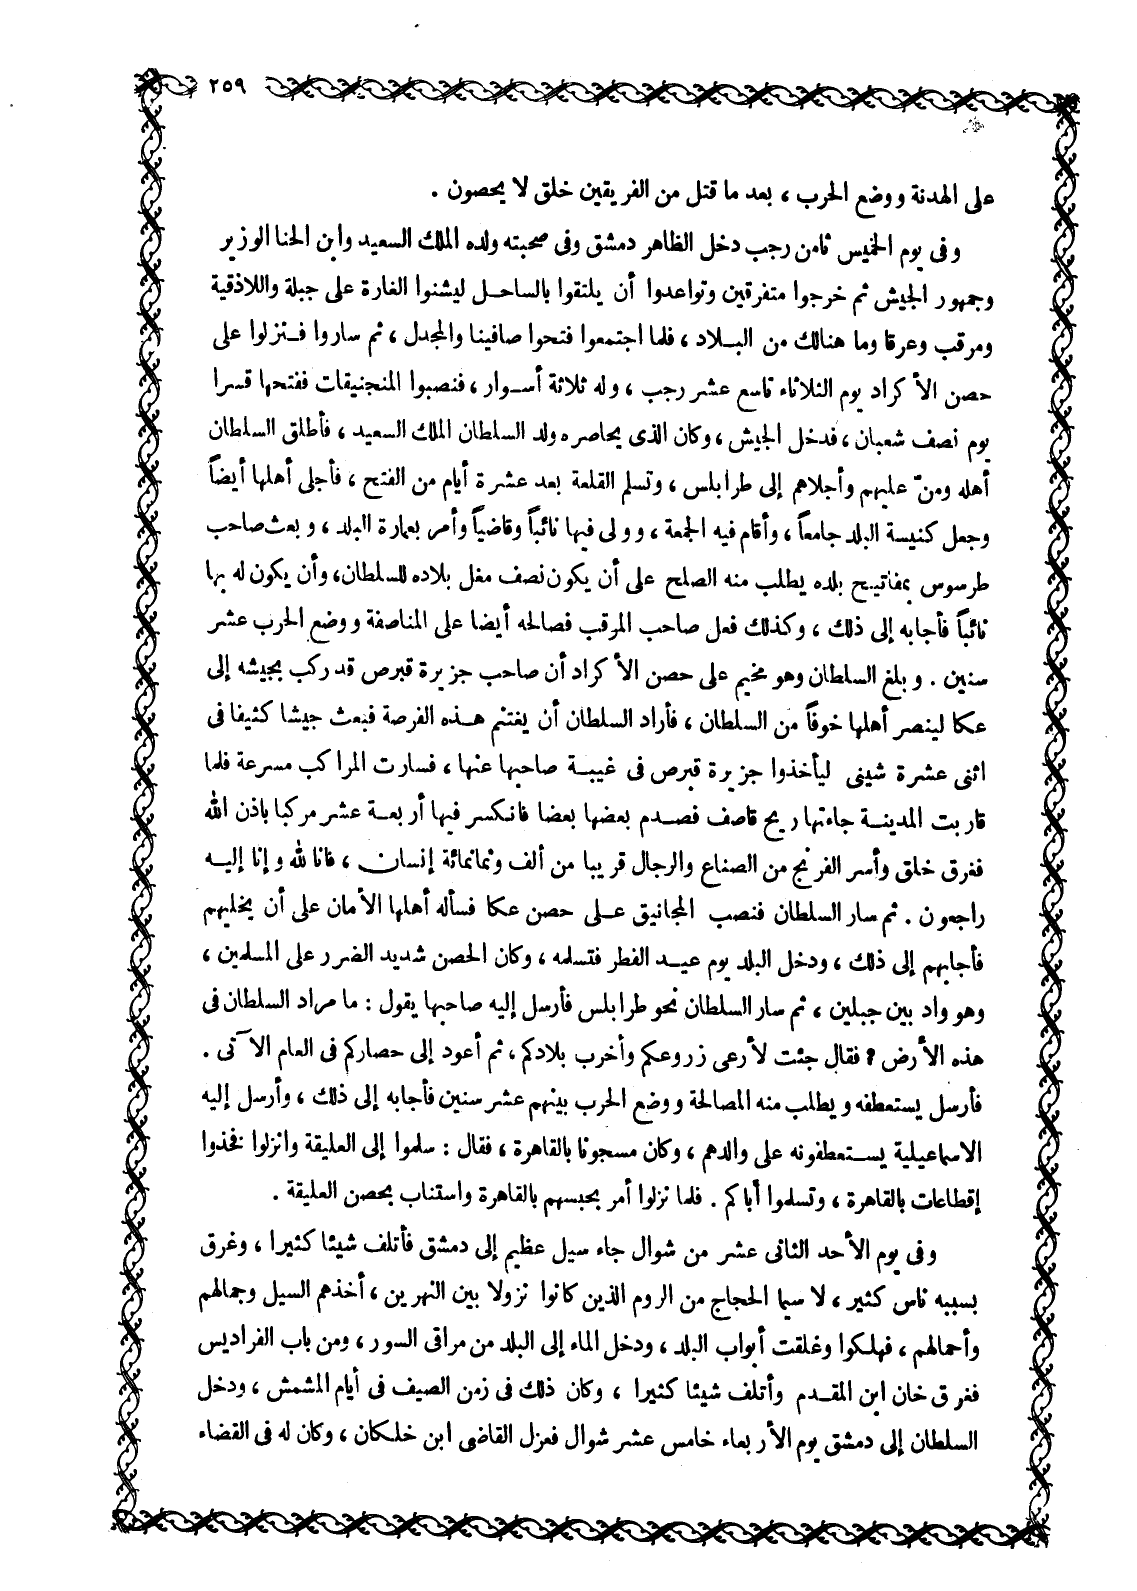 ٢٥٩
على الهدنة ووضع الحرب ، بعد ما قتل من الفريقين خلق لا يحصون .
وفى يوم الخميس ثامن رجب دخل الظاهر دمشق وفى صحبته ولده الملك السعيد وابن الحنا الوزير
وجمهور الجيش ثم خرجوا متفرقين وتواعدوا أن يلتقوا بالساحل ليشنوا الغارة على جبلة واللاذقية
ومرقب وعرقا وما هنالك من البلاد ، فلما اجتمعوا فتحوا صافينا والمجدل ، ثم ساروا فنزلوا على
حصن الأكراد يوم الثلاثاء تاسع عشر رجب ، وله ثلاثة أسوار ، فنصبوا المنجنيقات ففتحها قسرا
يوم نصف شعبان ، فدخل الجيش ، وكان الذى يحاصره ولد السلطان الملك السعيد ، فأطلق السلطان
أهله ومنّ عليهم وأجلاهم إلى طرابلس ، وتسلم القلعة بعد عشرة أيام من الفتح ، فأجلى أهلها أيضاً
وجعل كنيسة البلد جامعاً ، وأقام فيه الجمعة ، وولى فيها نائباً وقاضياً وأمر بعمارة البلد ، وبعث صاحب
طرسوس بمفاتيح بلده يطلب منه الصلح على أن يكون نصف مغل بلاده للسلطان، وأن يكون له بها
نائباً فأجابه إلى ذلك ، وكذلك فعل صاحب المرقب فصالحه أيضا على المناصفة ووضع الحرب عشر
سنين . وبلغ السلطان وهو مخيم على حصن الأكراد أن صاحب جزيرة قبرص قد ركب بجيشه إلى
عكا لينصر أهلها خوفاً من السلطان ، فأراد السلطان أن يغتنم هذه الفرصة فبعث جيشا كثيفا فى
اثنى عشرة شينى ليأخذوا جزيرة قبرص فى غيبة صاحبها عنها ، فسارت المراكب مسرعة فلما
قاربت المدينة جاءتها ريح قاصف فصدم بعضها بعضا فانكسر فيها أربعة عشر مركبا باذن الله
فغرق خلق وأسر الفرنج من الصناع والرجال قريبا من ألف وثمانمائة إنسان ، فانا لله وإنا إليه
راجعون . ثم سار السلطان فنصب المجانيق على حصن عكا فسأله أهلها الأمان على أن يخليهم
فأجابهم إلى ذلك ، ودخل البلد يوم عيد الفطر فتسلمه ، وكان الحصن شديد الضرر على المسلمين ،
وهو واد بين جبلين ، ثم سار السلطان نحو طرابلس فأرسل إليه صاحبها يقول : ما مراد السلطان فى
هذه الأرض ؟ فقال جئت لأرعى زروعكم وأخرب بلادكم ، ثم أعود إلى حصاركم فى العام الآتى .
فأرسل يستعطفه ويطلب منه المصالحة ووضع الحرب بينهم عشر سنين فأجابه إلى ذلك ، وأرسل إليه
الاسماعيلية يستعطفونه على والدهم ، وكان مسجونا بالقاهرة ، فقال : سلموا إلى العليقة وانزلوا فخذوا
إقطاعات بالقاهرة ، وتسلموا أباكم . فلما نزلوا أمر بحبسهم بالقاهرة واستناب بحصن العليقة .
وفى يوم الأحد الثانى عشر من شوال جاء سيل عظيم إلى دمشق فأتلف شيئا كثيرا ، وغرق
بسببه ناس كثير ، لا سيما الحجاج من الروم الذين كانوا نزولا بين النهرين ، أخذهم السيل وجمالهم
وأحمالهم ، فهلكوا وغلقت أبواب البلد ، ودخل الماء إلى البلد من مراقى السور ، ومن باب الفراديس
فغرق خان ابن المقدم وأتلف شيئا كثيرا ، وكان ذلك فى زمن الصيف فى أيام المشمش ، ودخل
السلطان إلى دمشق يوم الأربعاء خامس عشر شوال فعزل القاضى ابن خلكان ، وكان له فى القضاء